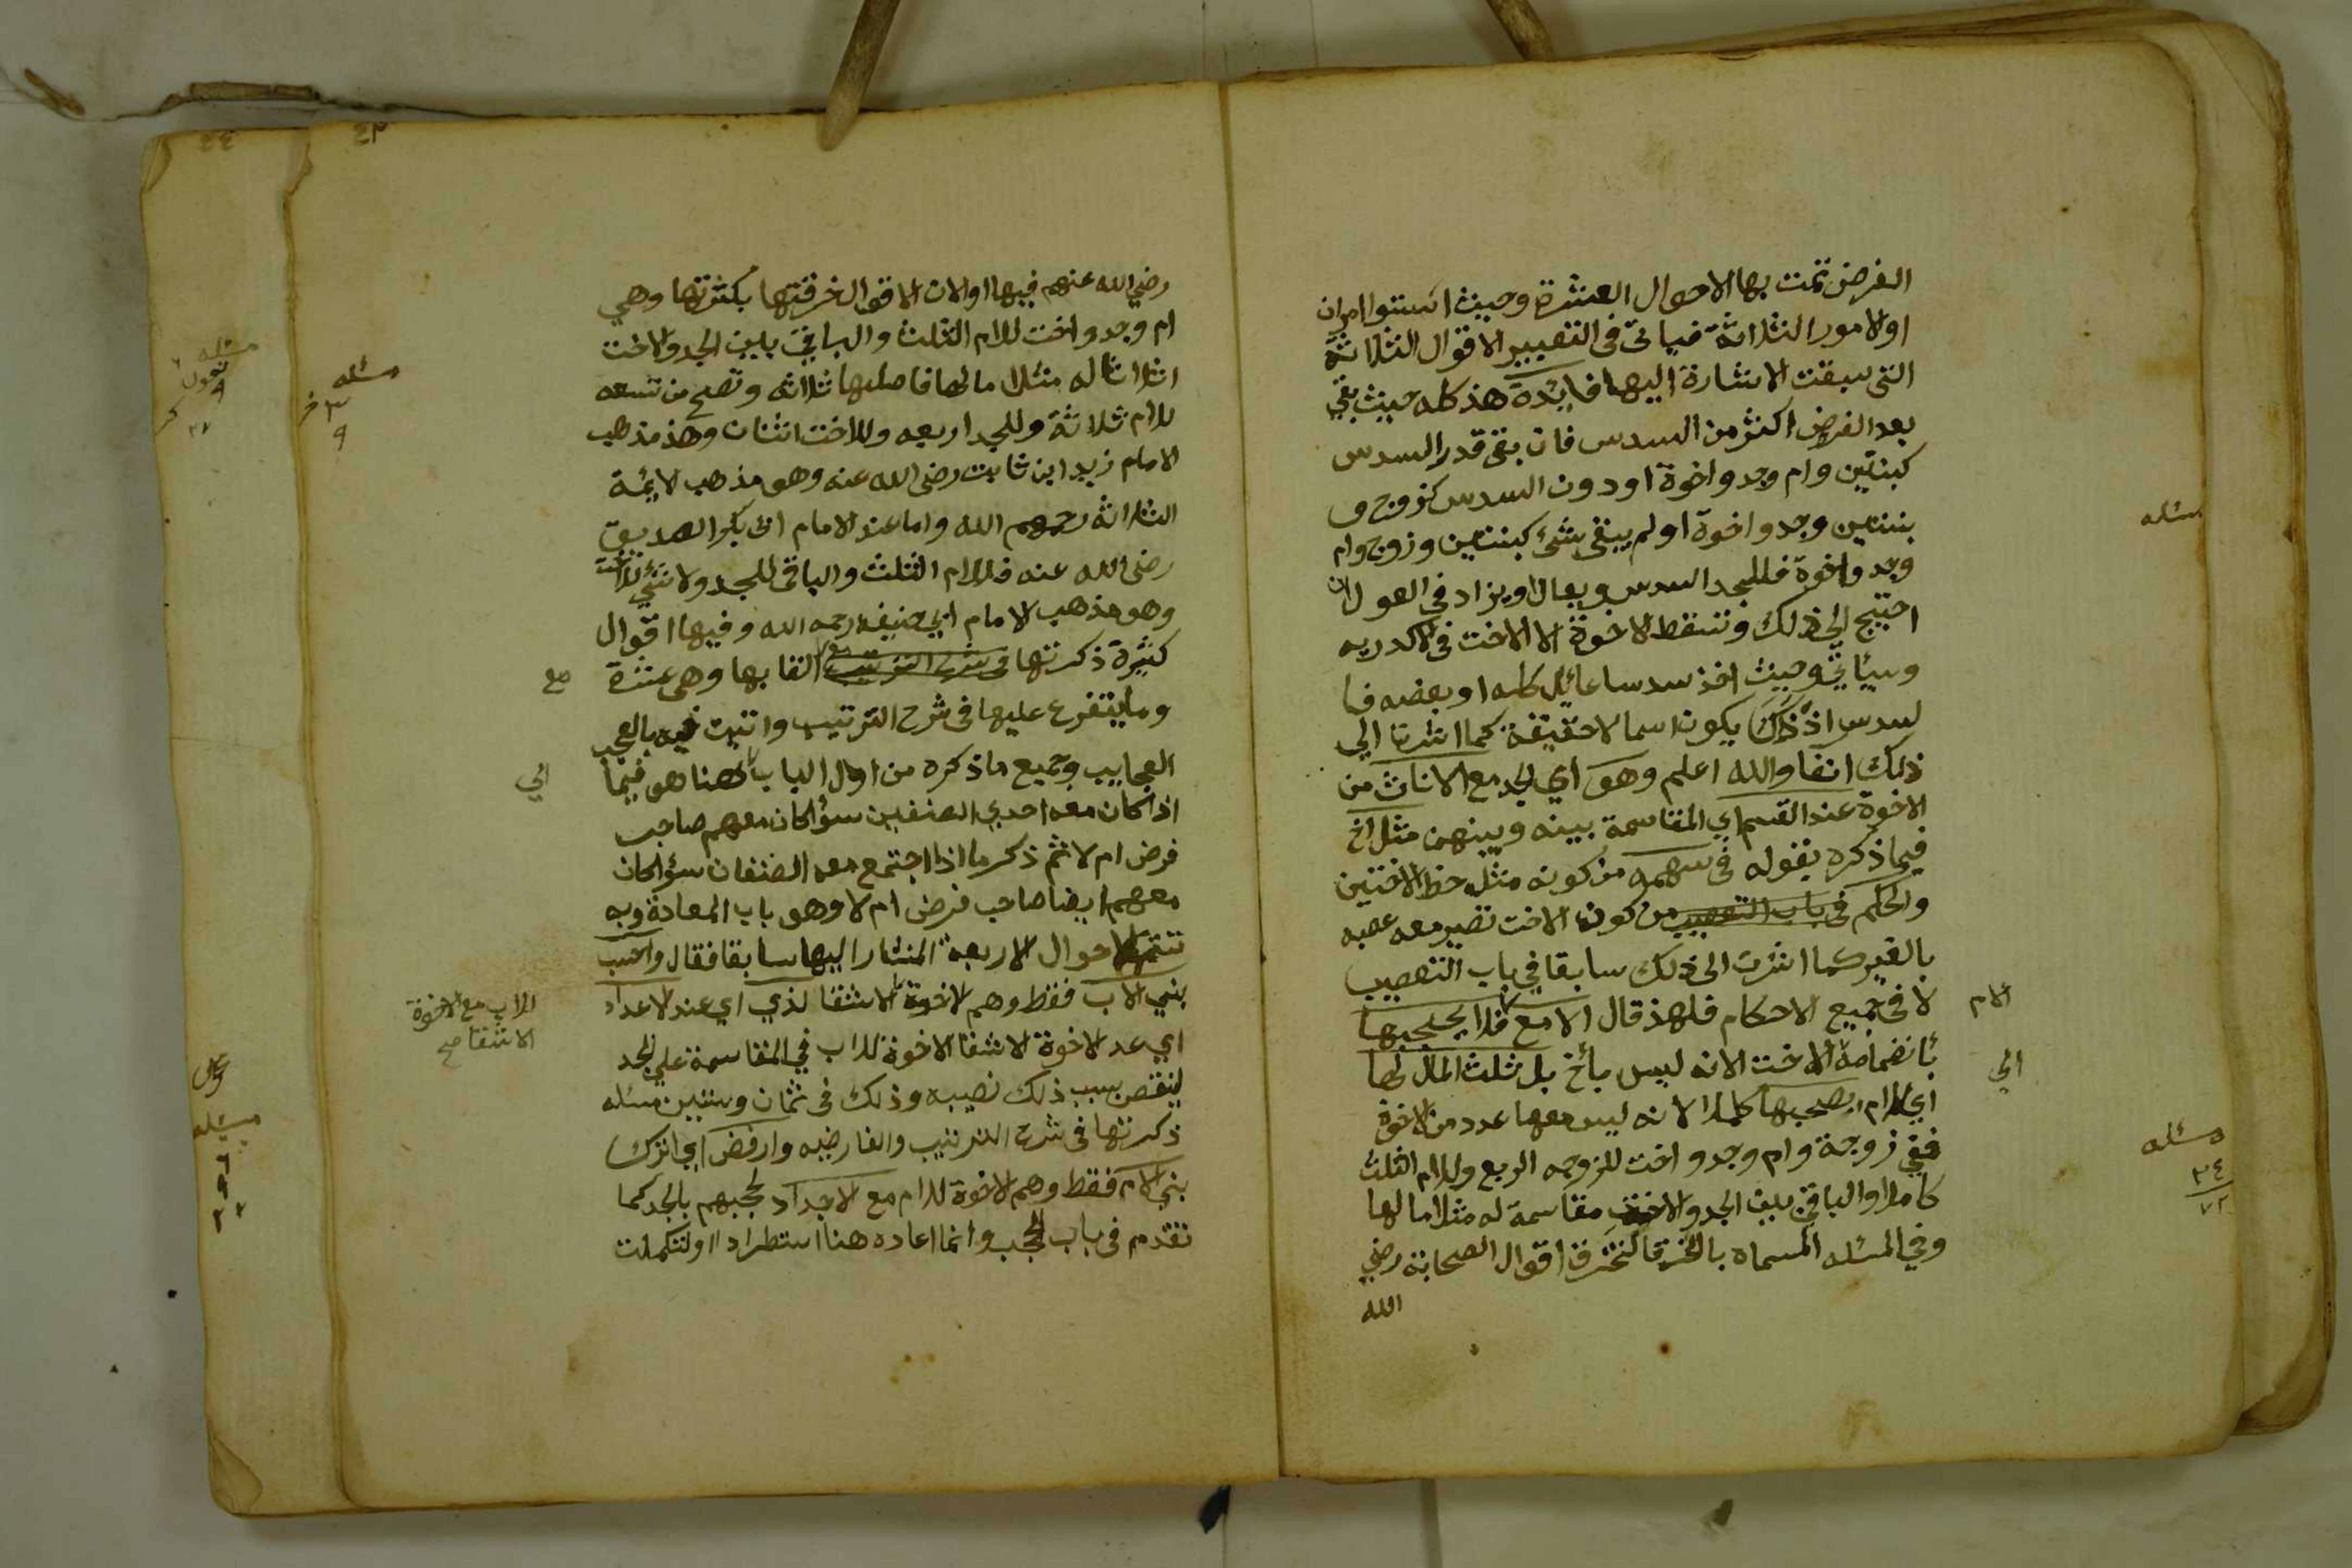 الفرض تمت بها الاحوال العشرة وحيث استوا امران
او الامور الثلاثة فياتى فى التعبير الاقوال الثلاثة
التى سبقت الاشارة اليها فايدة هذ كله حيث بقي
بعد الفرض اكثر من السدس فان بقى قدر السدس
كبنتين وام وجد واخوة او دون السدس كزوج و
بنتين وجد واخوة او لم يبقى شئ كبنتين وزوج وام
وجد واخوة فللجد السدس ويعال او يزاد في العول ان
احتيج الي ذلك وتسقط الاخوة الا الاخت فى الاكدريه
وسياتي وحيث اخذ سدسا عائلا كله او بعضه فا
لسدس اذ ذلك يكون اسما لا حقيقة كما اشرنا الي
ذلك انفا والله اعلم وهو اي الجد مع الاناث من
الاخوة عند القسم اي المقاسمة بينه وبينهن مثل اخ
فيما ذكره بقوله فى سهمه من كونه مثل حظ الاختين
والحكم فى باب التعصيب من كون الاخت تصير معه عصبه
بالغير كما اشرت الى ذلك سابقا في باب التعصيب
لا فى جميع الاحكام فلهذ قال الا مع فلا يحجبها
الام
بأنضمامه الاخت لانه ليس بأخ بل ثلث المال لها
الي
اي للام يصحبها كاملا لانه ليس معها عدد من الاخوة
ففي زوجة وام وجد واخت للزوجه الربع وللام الثلث
كاملا والباقي بين الجد والاخت مقاسمة له مثلا ما لها
وفي المسئله المسماه بالخرقا لتخرق اقوال الصحابة رضي
الله
مسئله
مسئله
٢٤
٧٢
٤٣
رضي الله عنهم فيها او لان الاقوال خرقتها بكثرتها وهي
ام وجد واخت للام الثلث والباقي بين الجد والاخت
اثلاثا له مثلا ما لها فاصلها ثلاثه وتصح من تسعه
للام ثلاثة وللجد اربعه وللاخت اثنان وهذ مذهب
الامام زيد ابن ثابت رضى الله عنه وهو مذهب الائمة
الثلاثه رحمهم الله واما عند الامام ابى بكر الصديق
رضى الله عنه فللام الثلث والباقى للجد ولا شئ للاخت
وهو مذهب الامام ابي حنيفه رحمه الله وفيها اقوال
كثيرة ذكرتها فى شرح الترتيب القابها وهى عشرة
مع
وما يتفرع عليها فى شرح الترتيب واتيت فيه بالعجب
العجايب وجميع ما ذكره من اول الباب هنا هو فيما
الي
اذا كان معه احدي الصنفين سؤا كان معهم صاحب
فرض ام لا ثم ذكر ما اذا اجتمع معه الصنفان سؤا كان
معهم ايضا صاحب فرض ام لا وهو باب المعادة وبه
تتمة الاحوال الاربعة المشار اليها سابقا فقال واحسب
بني الاب فقط وهم الاخوة الاشقا لذي اي عند الاعداد
للاب مع الاخوة
الاشقا صح
اي عد الاخوة الاشقا الاخوة للاب في المقاسمة علي الجد
لينقص بسبب ذلك نصيبه وذلك فى ثمان وستين مسئله
ذكرتها فى شرح الترتيب والفارضيه وارفض اي اترك
بني الام فقط وهم الاخوة للام مع الاجداد لحجبهم بالجد كما
تقدم فى باب الحجب وأنما اعاده هنا استطرادا او لتكملت
مسئله
٣
٩
٤٤
مسئله
تعول
٩
٢٧
مسئله